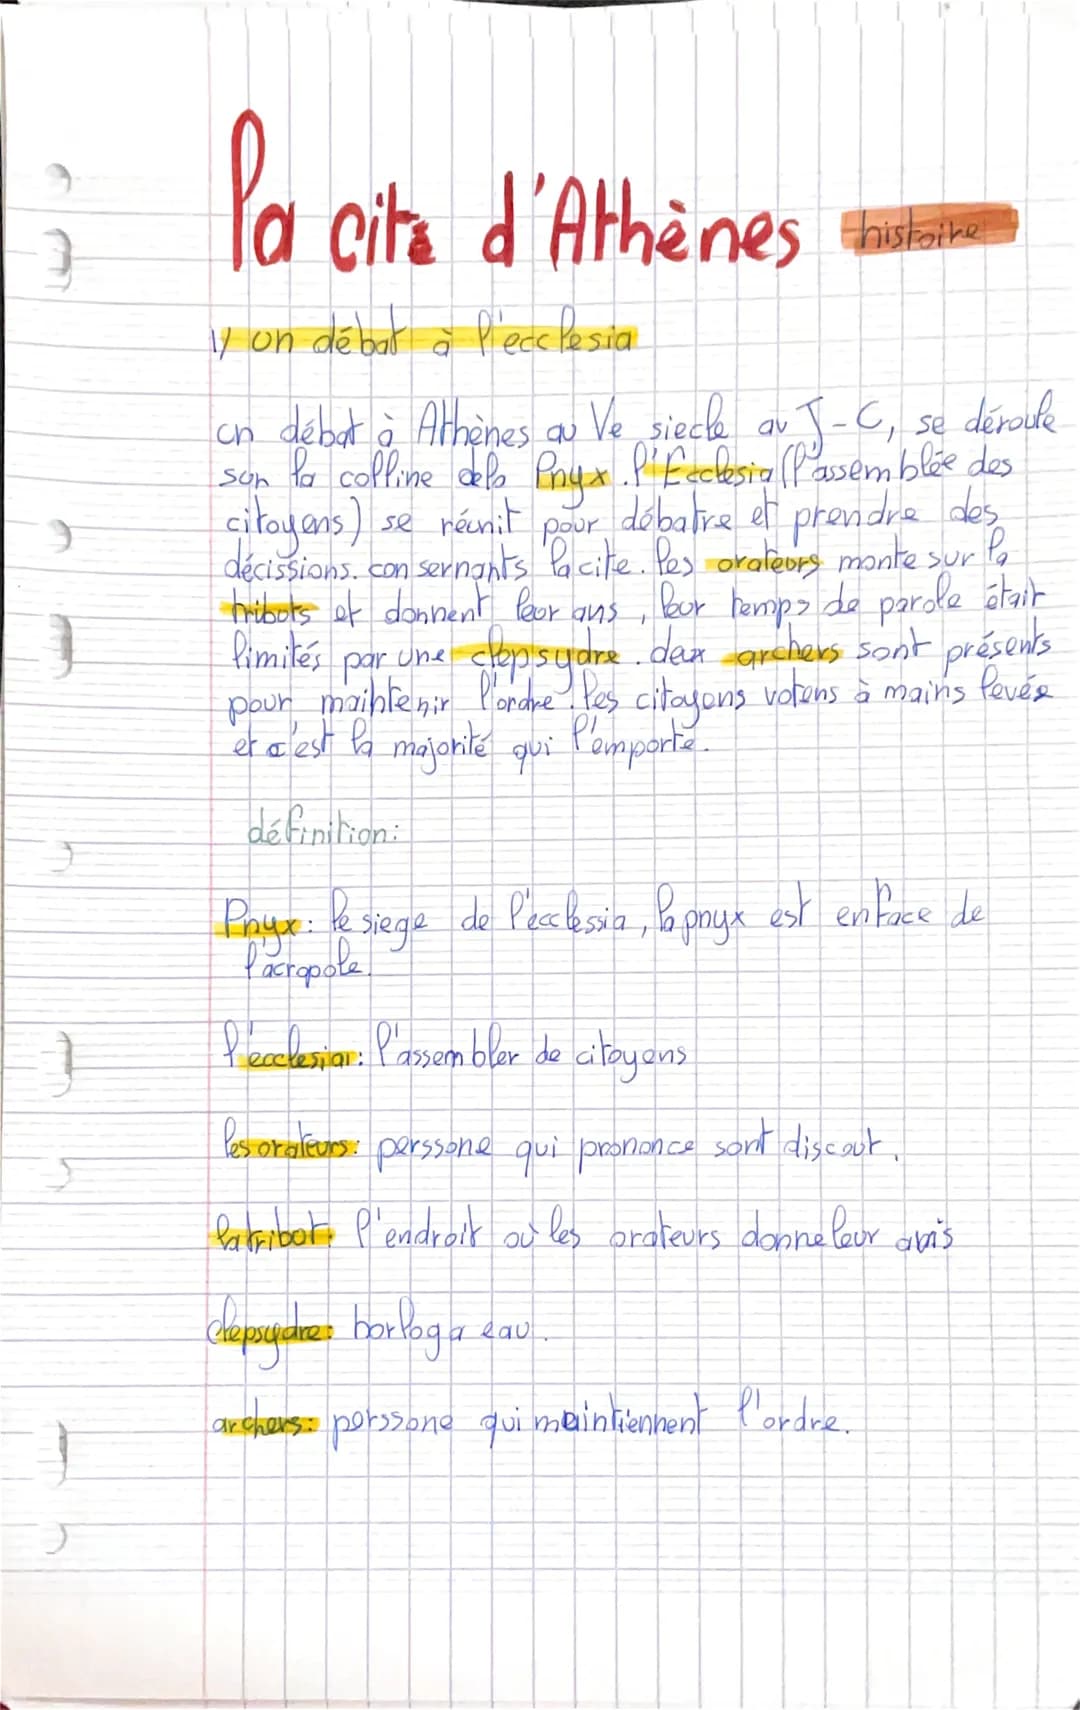 la cité d'Athènes histoire
1/ un débat à l'ecclesia
un débat à Athènes au Ve siecle av J-C, se déroule
sur la colline de la Pnyx. l'Ecclesia (l'assemblée des
citoyens) se réunit pour débatre et prendre des
décissions. con sernants la cite. les orateurs monte sur la
tribots et donnent leur avis, leur temps de parole était
limités par une clepsydre. deux archers sont présents
pour maintenir l'ordre. les citoyens votens à mains levés
et c'est la majorité qui l'emporte.
définition:
Pnyx: le siege de l'ecclessia, la pnyx est en face de
l'acropole.
l'ecclesiar: l'assembler de citoyens
les orateurs: perssone qui prononce sont discout.
la tribot: l'endroit où les orateurs donne leur avis
clepsydre: horlog a eau.
archers: perssone qui maintiennent l'ordre.